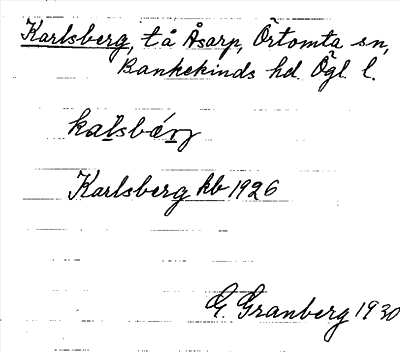 Karlsberg, t å Åsarp, Örtomta sn,
Bankekinds hd. Ögl l.
kaḷsbárg
Karlsberg hb 1926
G. Granberg 1930